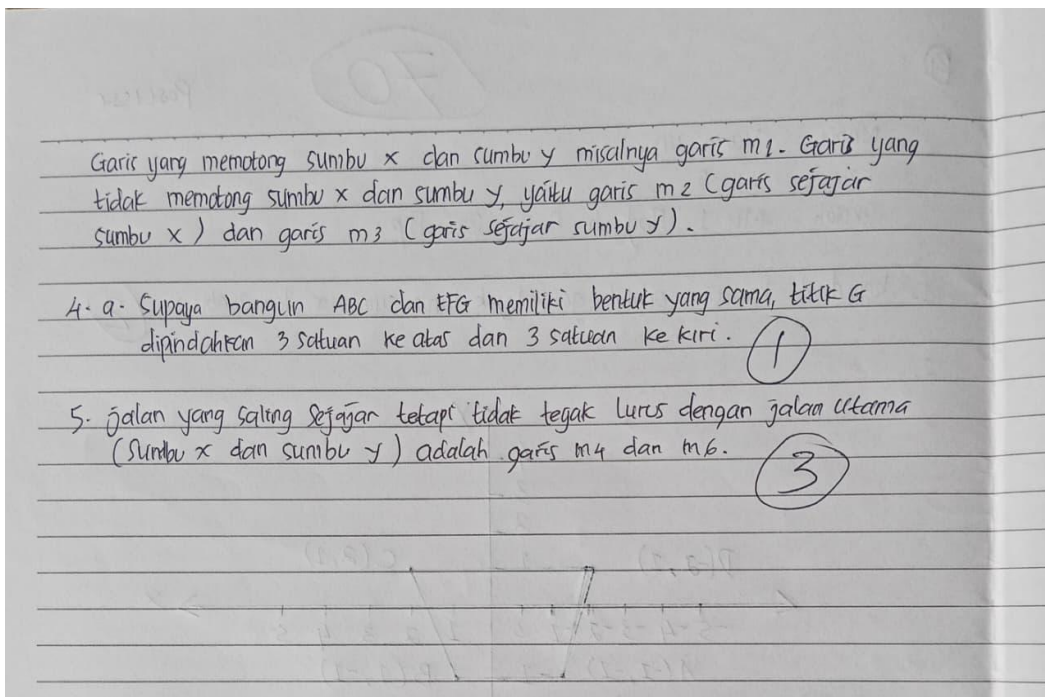 Garis yang memotong sumbu x dan sumbu y misalnya garis m1. Garis yang
tidak memotong sumbu x dan sumbu y, yaitu garis m2 (garis sejajar
sumbu x) dan garis m3 (garis sejajar sumbu y).
4. a. Supaya bangun ABC dan EFG memiliki bentuk yang sama, titik G
dipindahkan 3 satuan ke atas dan 3 satuan ke kiri.
1
5. jalan yang saling sejajar tetapi tidak tegak lurus dengan jalan utama
(sumbu x dan sumbu y) adalah garis m4 dan m6.
3